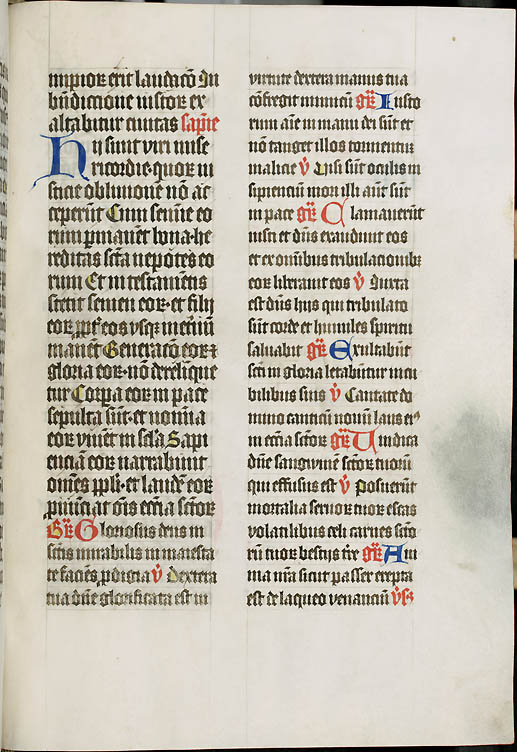 impior erit laudacō In
bn̄diccione iustor ex
altabitur ciuitas sapiē
Hij sunt viri mise
ricordie·quor iu
sticie obliuionē nō ac
ceperūt Cum semīe eo
rum ꝑmanēt bona·he
reditas scta nepotes eo
rum Et in testamētis
stetit semen eor·et filij
eor ꝓpt̄ eos vsqꝫ in et̄nū
manēt Generacō eor et
gloria eor·nō derelīque
tur Corpa eor in pace
sepulta sūt·et nomīa
eor viuēt in sc̄la Sapi
enciā eor narrabunt
omēs ppl̄i·et laudē eor
ꝓnūciat oīs ecc̄ia sctor
Gr̄ Gloriosus deus in
sctīs mirabilis in maiesta
te faciēs ꝓdigia v̄ Dextera
tua dn̄e glorificata est in
virtute dextera manus tua
cōfregit inimicū gr̄ Iusto
rum aīe in manu dei sūt et
nō tanget illos tormentū
malicie v̄ Visi sūt oculis in
sipienciū mori illi aūt sūt
in pace gr̄ Clamauerūt
iusti et dn̄s exaudiuit eos
et ex omībus tribulacionibꝫ
eor liberauit eos v̄ Iuxta
est dn̄s hijs qui tribulato
sūt corde et humiles spiritu
saluabit gr̄ Exultabūt
sctī in gloria letabūtur in cu
bilibus suis v̄ Cantate do
mino canticū nouū laus eiꝰ
in ecc̄ia sctor gr̄ Vindica
dn̄e sanguinē sctor tuorū
qui effusus est v̄ Posuerūt
mortalia seruor tuor escas
volatilibus celi carnes scto
rū tuor bestijs t̄re gr̄ Ani
ma nr̄a sicut passer erepta
est de laqueo venanciū v̄s